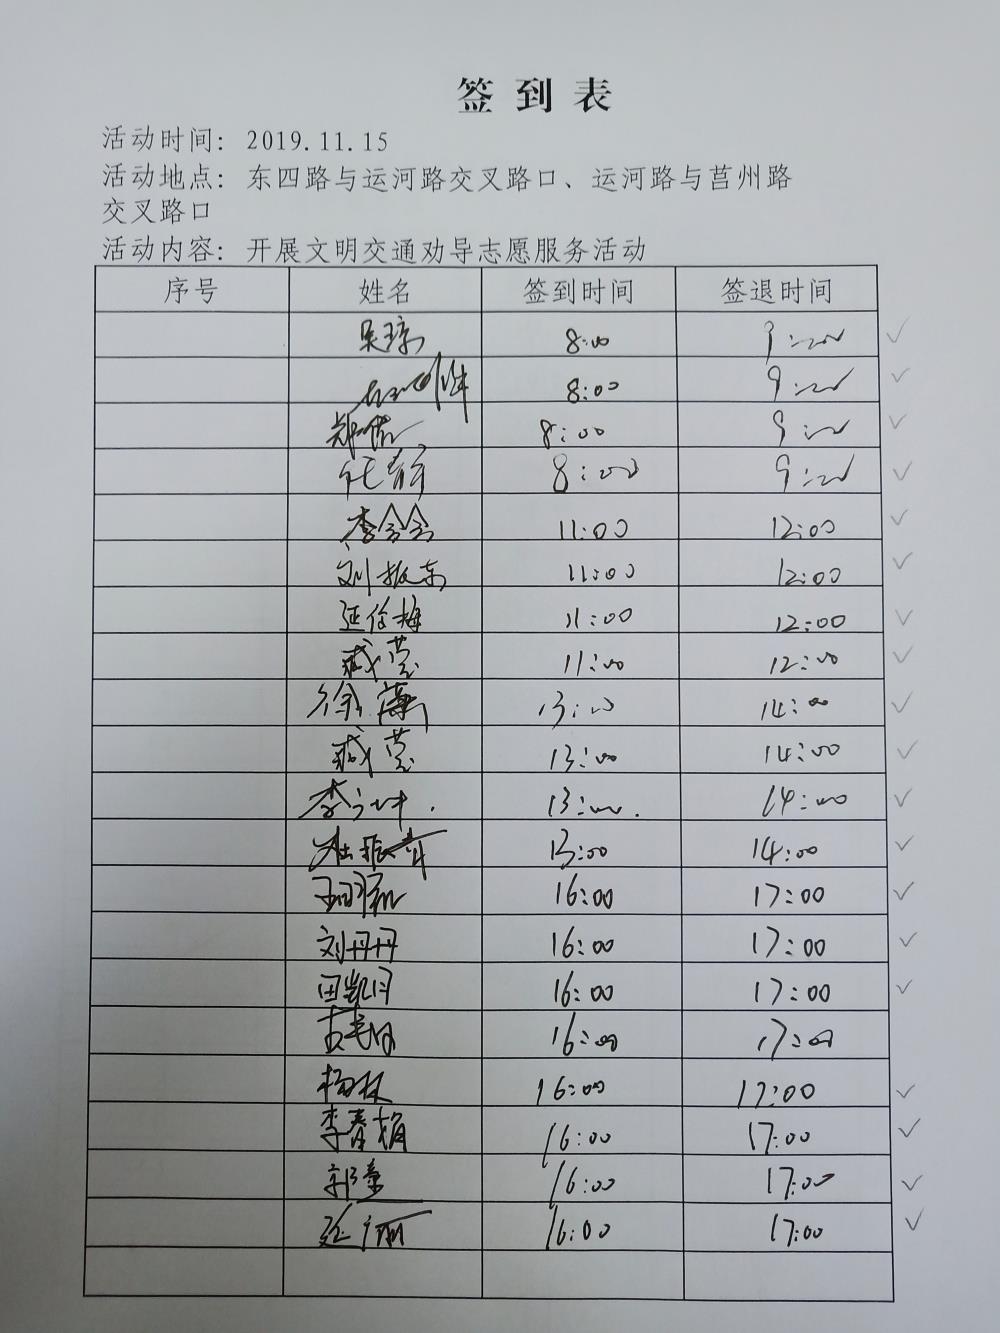 签到表
活动时间：2019.11.15
活动地点：东四路与运河路交叉路口、运河路与莒州路
交叉路口
活动内容：开展文明交通劝导志愿服务活动
序号 姓名 签到时间 签退时间
吴琼 8:00 9:20
8:00 9:20
郑 8:00 9:20
8:00 9:20
李会会 11:00 12:00
刘振东 11:00 12:00
11:00 12:00
臧莹 11:00 12:00
徐 13:00 14:00
臧莹 13:00 14:00
李 13:00 14:00
杜振 13:00 14:00
16:00 17:00
刘丹丹 16:00 17:00
田凯月 16:00 17:00
16:00 17:00
杨林 16:00 17:00
李春娟 16:00 17:00
郭 16:00 17:00
16:00 17:00